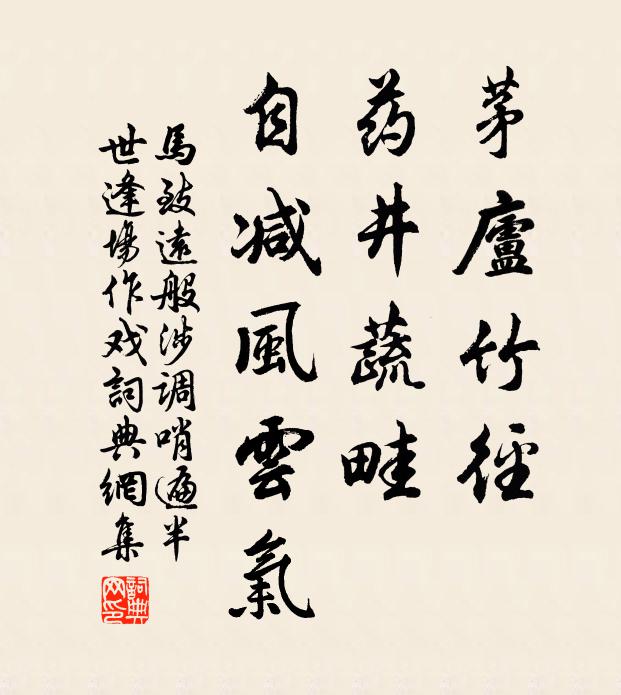 茅廬竹徑
药井蔬畦
自减風雲氣
馬致遠般涉调哨遍半
世逢場作戏詞典網集
詞典
网印